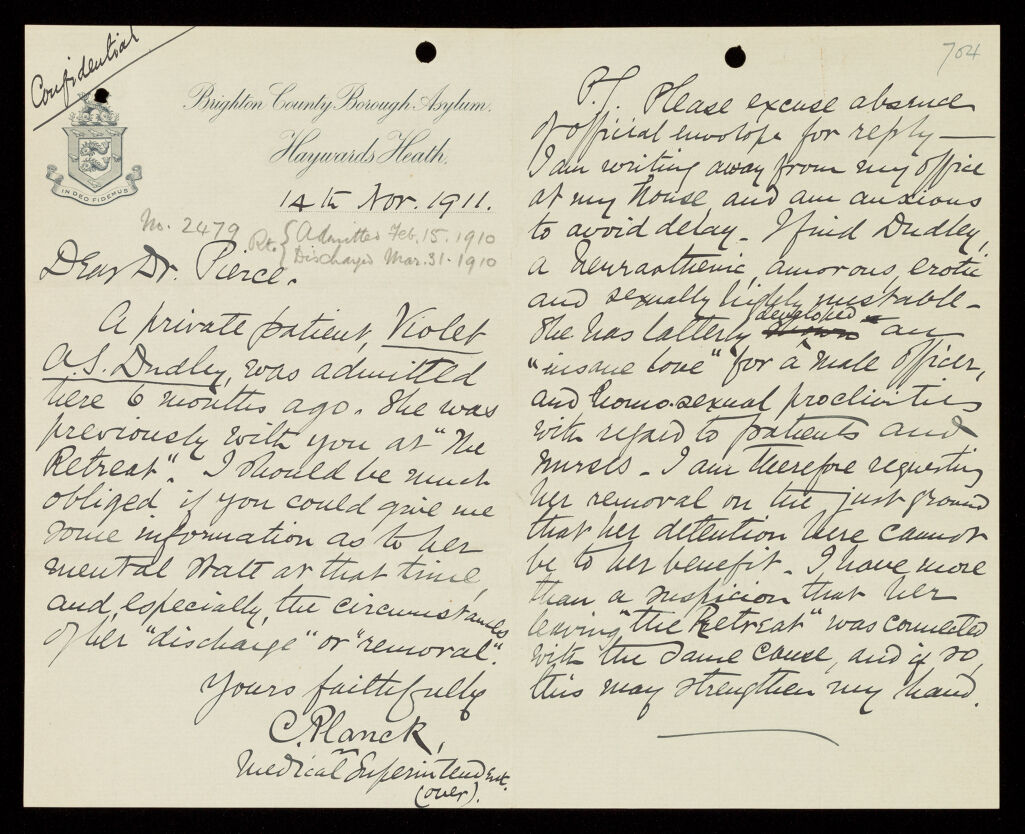 Confidential
Brighton County Borough Asylum.
Haywards Heath,
IN DEO FIDEMUS
14th Nov. 1911.
No. 2479 Pt. { Admitted Feb. 15. 1910
Discharged Mar. 31. 1910
Dear Dr. Pierce.
A private patient, Violet
A.S. Dudley, was admitted
here 6 months ago. She was
previously with you at "The
Retreat". I should be much
obliged if you could give me
some information as to her
mental state at that time,
and, especially, the circumstances
of her "discharge" or "removal".
Yours faithfully
C. Planck,
Medical Superintendent.
(over).
704
P.S. Please excuse absence
of official envelope for reply —
I am writing away from my office
at my house, and am anxious
to avoid delay. I find Dudley,
a neurasthenic, amorous, erotic
and sexually highly unstable –
She has latterly developed an
"insane love" for a male officer,
and homo-sexual proclivities
with regard to patients and
nurses – I am therefore requesting
her removal on the just ground
that her detention here cannot
be to her benefit. I have more
than a suspicion that her
leaving "the Retreat" was connected
with the same cause, and if so,
this may strengthen my hand.